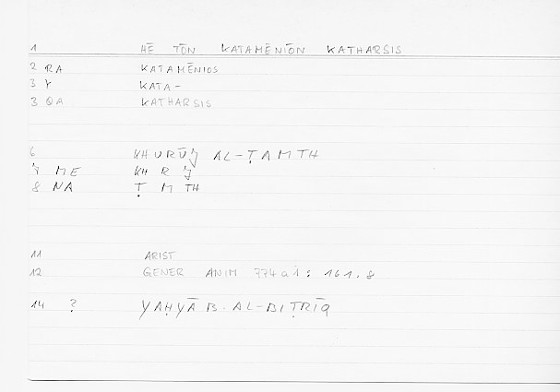 1 HĒ TŌN KATAMĒNIŌN KATHARSIS
2 RA KATAMĒNIOS
3 Y KATA-
3 QA KATHARSIS
6 KHURŪǦ AL-ṬAMTH
7 ME KH R Ǧ
8 NA Ṭ M TH
11 ARIST
12 GENER ANIM 774a1 : 161.8
14 ? YAḤYĀ B. AL-BIṬRĪQ